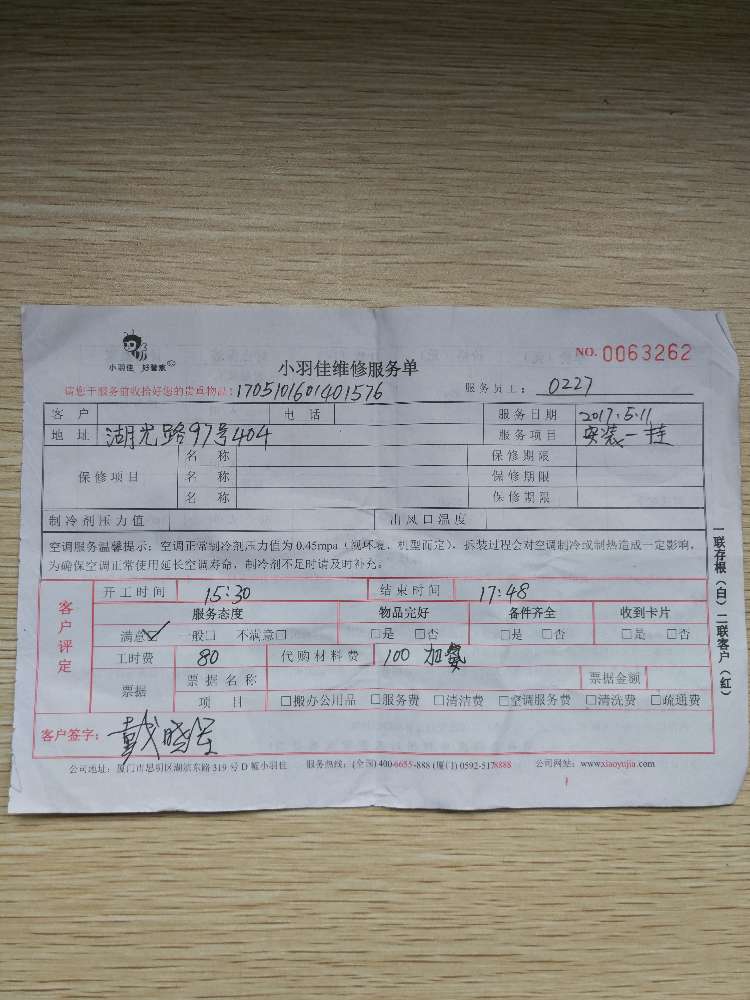 小羽佳 好管家
小羽佳维修服务单
NO. 0063262
请您于服务前收拾好您的贵重物品: 1705101601401576
服务员工: 0227
客 户 电 话 服务日期 2017.5.11
地 址 湖光路97号404 服务项目 安装一挂
保修项目
名 称 保修期限
名 称 保修期限
名 称 保修期限
制冷剂压力值 出风口温度
空调服务温馨提示: 空调正常制冷剂压力值为0.45mpa(视环境、机型而定), 拆装过程会对空调制冷或制热造成一定影响,
为确保空调正常使用延长空调寿命, 制冷剂不足时请及时补充。
客户评定
开工时间 15:30 结束时间 17:48
服务态度 物品完好 备件齐全 收到卡片
满意☑ 一般□ 不满意□ □是 □否 □是 □否 □是 □否
工时费 80 代购材料费 100 加氨
票据 票据名称 票据金额
项 目 □搬办公用品 □服务费 □清洁费 □空调服务费 □清洗费 □疏通费
客户签字:
公司地址: 厦门市思明区湖滨东路319号D幢小羽佳 服务热线: (全国) 400-6655-888 (厦门) 0592-5178888 公司网站: www.xiaoyujia.com
一联存根(白) 二联客户(红)